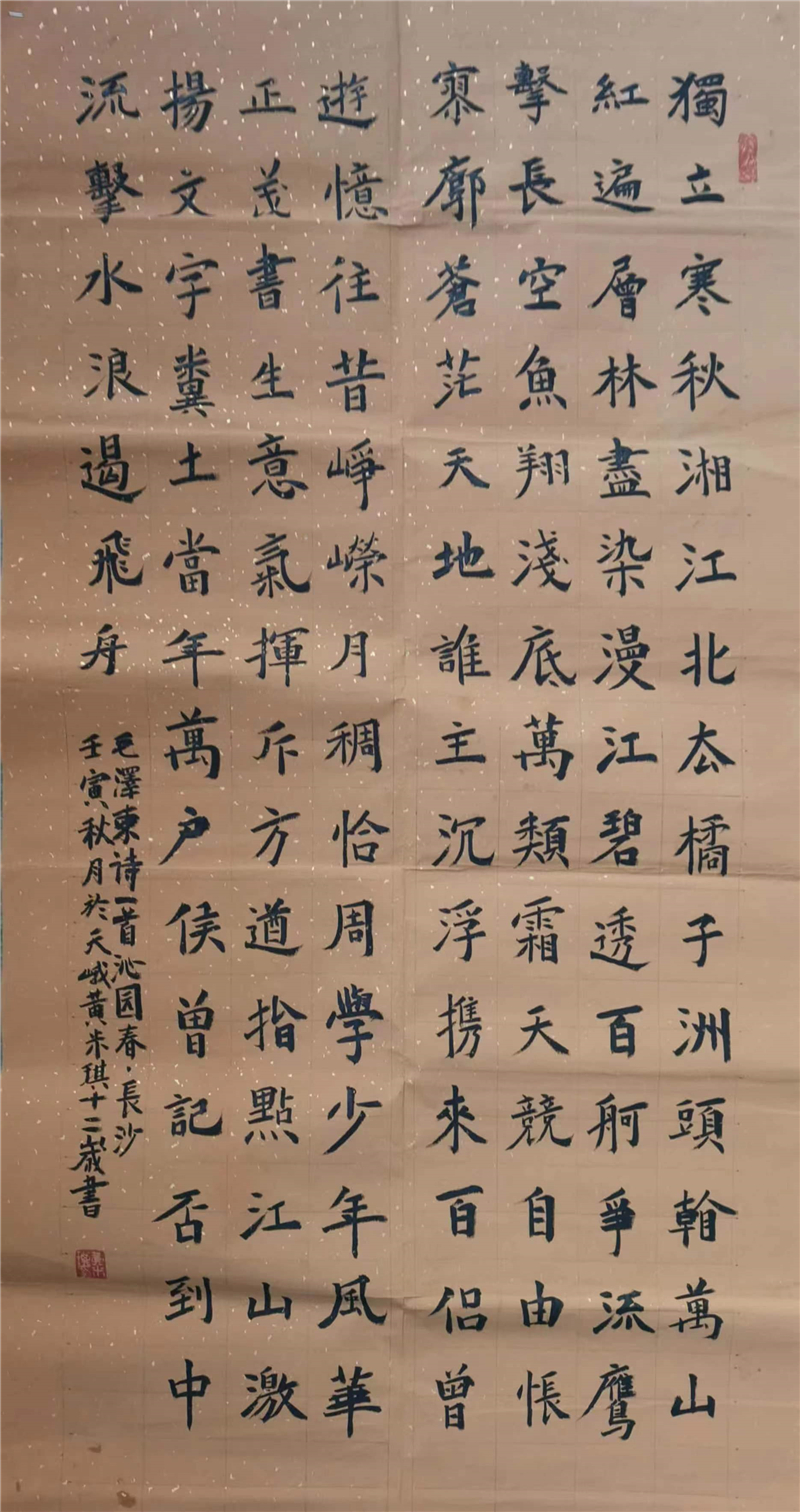 獨立寒秋湘江北厺橘子洲頭看萬山
紅遍層林盡染漫江碧透百舸爭流鷹
擊長空魚翔淺底萬類霜天競自由悵
寥廓蒼茫天地誰主沉浮携來百侶曾
遊憶往昔崢嶸月稠恰周學少年風華
正茂書生意氣揮斥方遒指點江山激
揚文字糞土當年萬户侯曾記否到中
流擊水浪遏飛舟
毛澤東诗一首沁园春·長沙
壬寅秋月於天峨黄米琪十二歲書